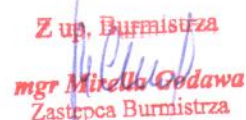 Z up. Burmistrza
mgr Mirella Godawa
Zastępca Burmistrza